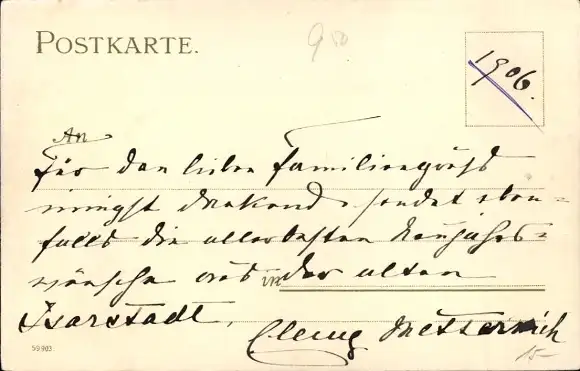 POSTKARTE.
9 50
1906.
An
Für den lieben Familiengruß
innigst dankend, sendet eben=
falls die allerbesten Neujahrs=
wünsche aus in der alten
Isarstadt,
Clemens Metternich
15-
59903